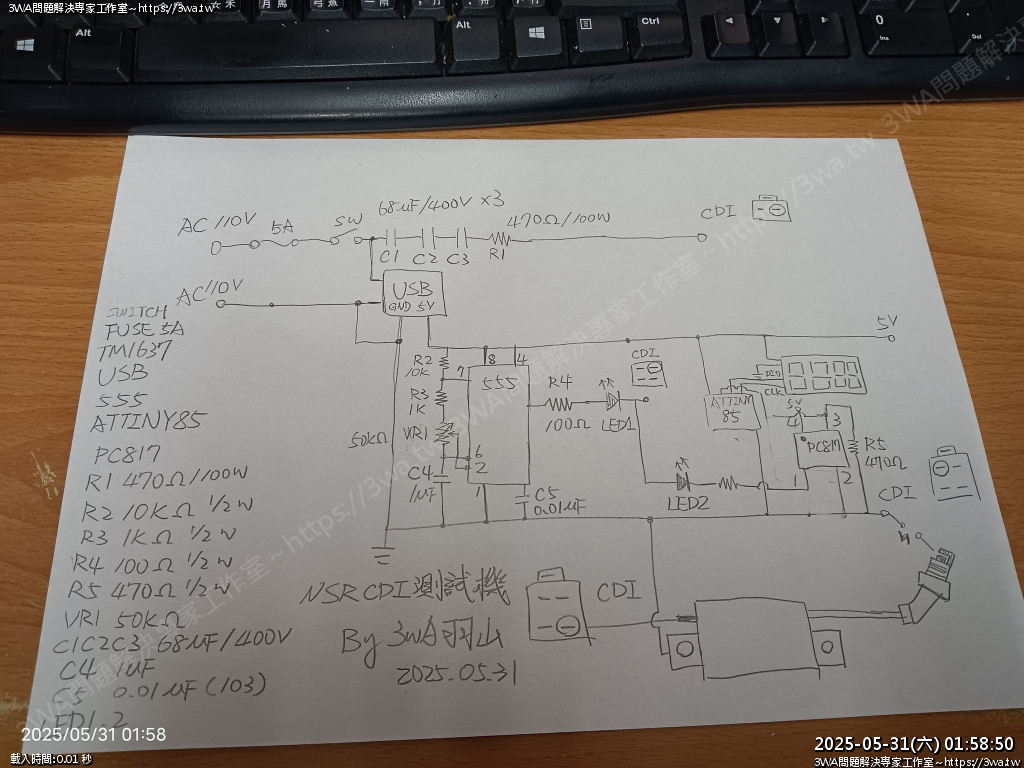 3WA問題解決專家工作室~https://3wa.tw
Alt
Alt
Ctrl
0
Ins
Del
AC 110V
5A
SW
68uF/400V x3
470Ω/100W
CDI
C1 C2 C3 R1
AC110V
USB
GND 5V
5V
SWITCH
FUSE 5A
TM1637
USB
555
ATTINY85
PC817
R1 470Ω/100W
R2 10KΩ 1/2W
R3 1KΩ 1/2W
R4 100Ω 1/2W
R5 470Ω 1/2W
VR1 50KΩ
C1C2C3 68uF/400V
C4 1uF
C5 0.01uF(103)
LED1.2
R2
10K
7
8
4
555
R3
1K
50KΩ
VR1
6
2
C4
1uF
1
C5
0.01uF
R4
100Ω
LED1
CDI
LED2
ATTINY
85
DIO
CLK
5V
4
3
PC817
1
2
R5
470Ω
CDI
NSR CDI測試機
By 3WA羽山
2025.05.31
CDI
2025/05/31 01:58
載入時間:0.01 秒
2025-05-31(六) 01:58:50
3WA問題解決專家工作室~https://3wa.tw